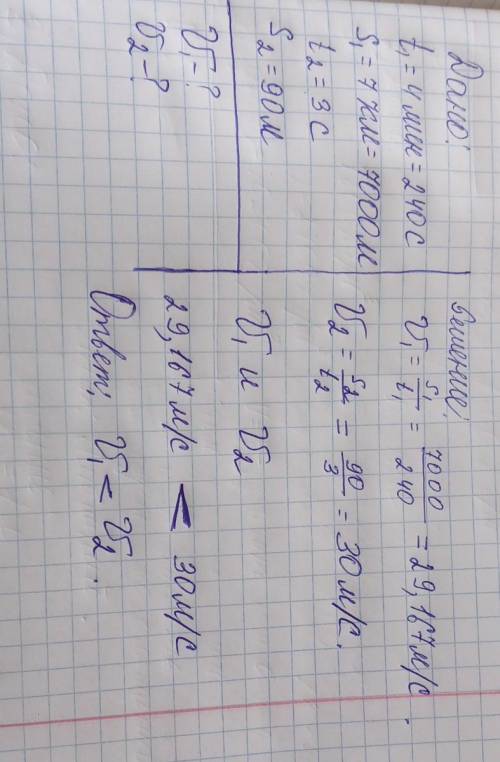 Дано:
t₁ = 4 мин = 240 с
S₁ = 7 км = 7000 м
t₂ = 3 с
S₂ = 90 м
V₁ - ?
V₂ - ?
Решение:
V₁ = S₁/t₁ = 7000/240 = 29,167 м/с.
V₂ = S₂/t₂ = 90/3 = 30 м/с.
V₁ и V₂
29,167 м/с < 30 м/с
Ответ: V₁ < V₂.